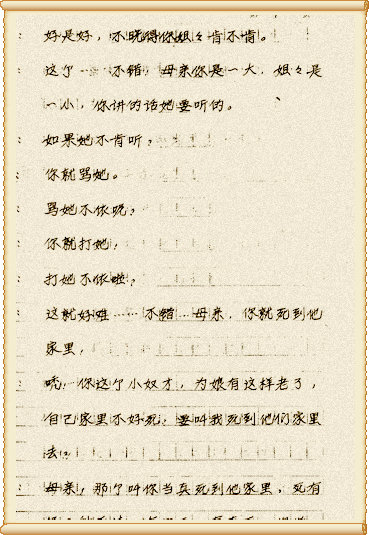 ：好是好，不晓得你姐々肯不肯。
：这个……不错，母亲你是一大，姐々是
一小，你讲的话她要听的。
：如果她不肯听？
：你就骂她。
：骂她不依呢？
：你就打她；
：打她不依啦？
：这就好难……不错，母亲，你就死到他
家里，
：唔！你这个小奴才，为娘有这样老了，
自己家里不好死？要叫我死到他们家里
去？
：母亲，那个叫你当真死到他家里，死有